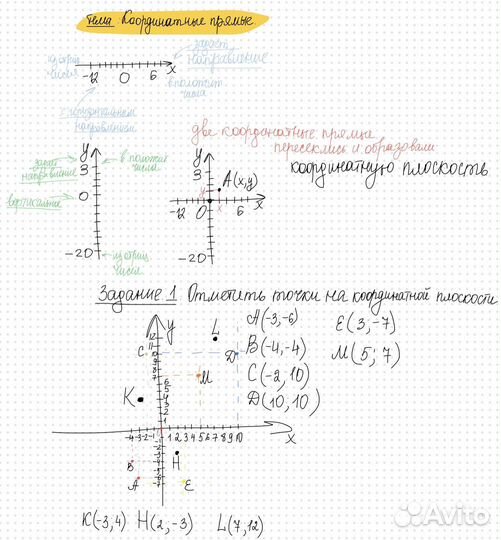 Тема: Координатные прямые.
задаёт направление
из отриц числа
-12 0 6 x
в положит числа
с горизонтальным направлением
две координатные прямые
пересеклись и образовали
координатную плоскость
y
задаёт направление
3
в положит числа
вертикальное
0
-20
из отриц числа
y
3
A(x,y)
y
-12 0 x 6 x
-20
Задание 1. Отметить точки на координатной плоскости
A(-3,-6)
B(-4,-4)
C(-2,10)
D(10,10)
E(3,-7)
M(5;7)
y
L
C
D
M
K
-4 -3 -2 -1 1 2 3 4 5 6 7 8 9 10
x
B
H
A
E
K(-3,4) H(2,-3) L(7,12)
Avito